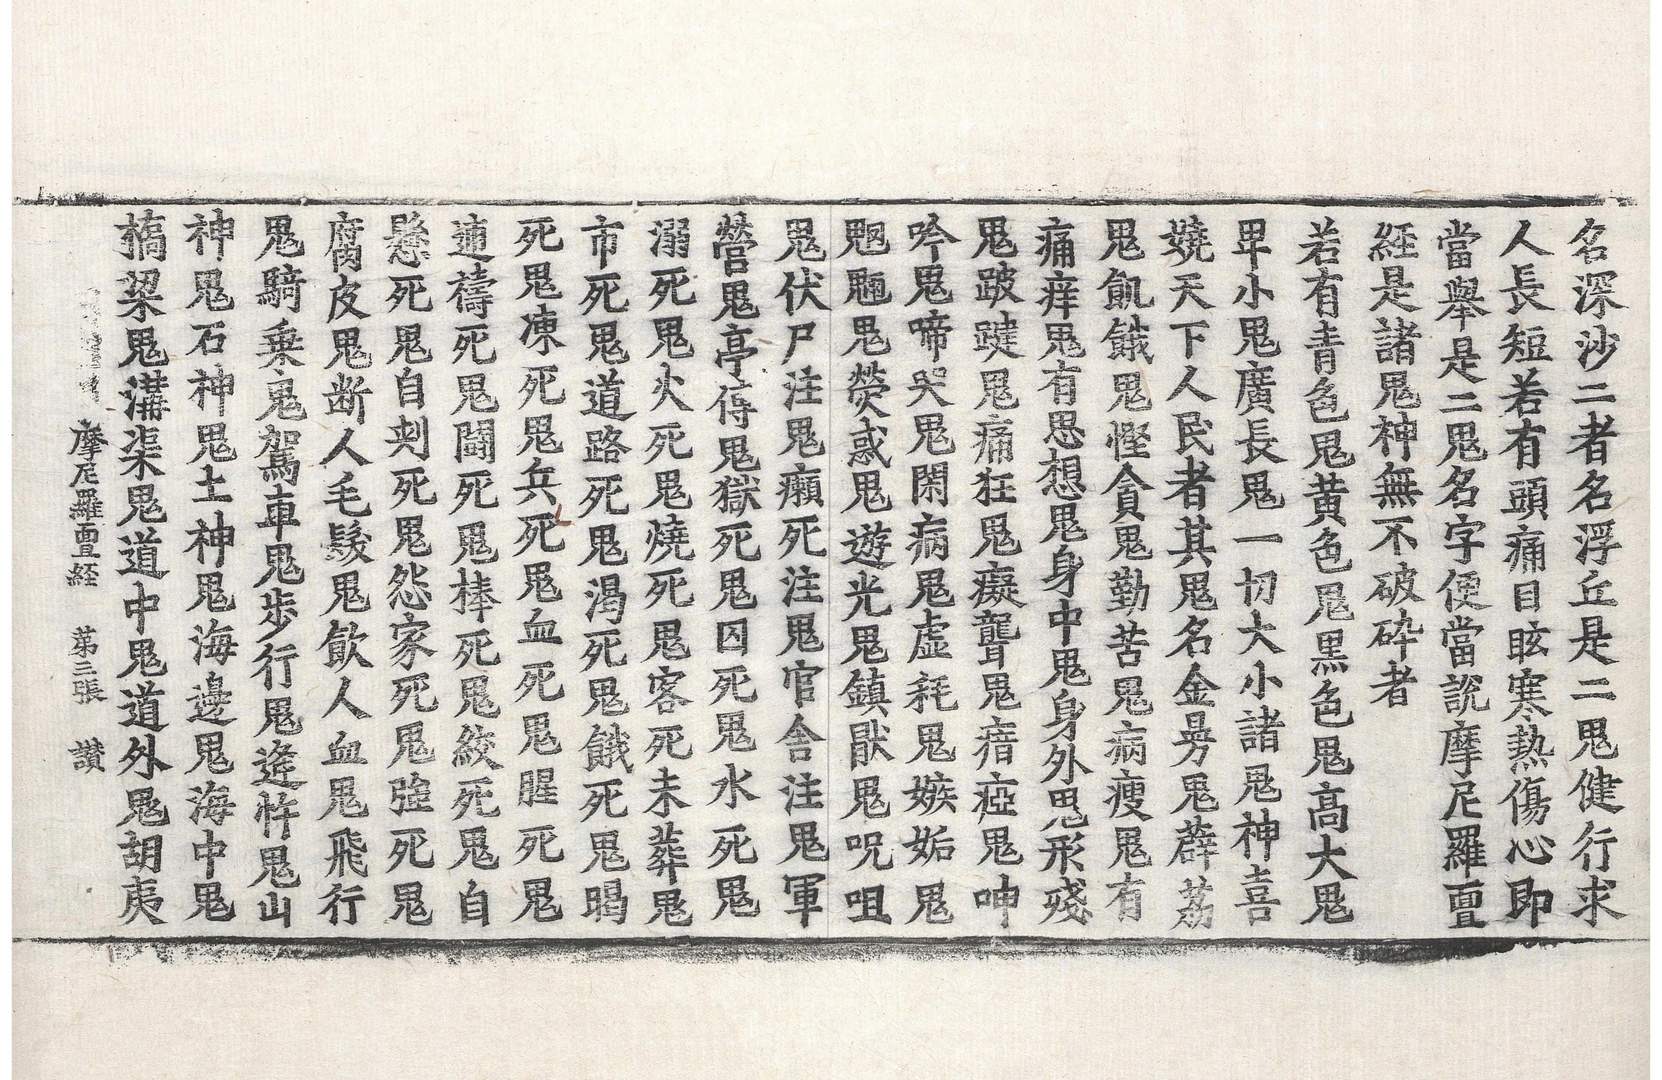 名深沙二者名浮丘是二鬼健行求
人長短若有頭痛目眩寒熱傷心即
當舉是二鬼名字便當說摩尼羅亶
經是諸鬼神無不破碎者
若有青色鬼黃色鬼黑色鬼高大鬼
卑小鬼廣長鬼一切大小諸鬼神喜
嬈天下人民者其鬼名金㫄鬼薜荔
鬼飢餓鬼慳貪鬼勤苦鬼病瘦鬼有
痛痒鬼有思想鬼身中鬼身外鬼形殘
鬼跛躄鬼痛狂鬼癡聾鬼瘖瘂鬼呻
吟鬼啼哭鬼閑病鬼虛耗鬼嫉妬鬼
魍魎鬼熒惑鬼遊光鬼鎮厭鬼呪咀
鬼伏尸注鬼癩死注鬼官舍注鬼軍
營鬼亭傳鬼獄死鬼囚死鬼水死鬼
溺死鬼火死鬼燒死鬼客死未葬鬼
市死鬼道路死鬼渴死鬼餓死鬼暍
死鬼凍死鬼兵死鬼血死鬼腥死鬼
逋禱死鬼鬪死鬼棒死鬼絞死鬼自
懸死鬼自刺死鬼怨家死鬼強死鬼
腐皮鬼断人毛髮鬼飲人血鬼飛行
鬼騎乘鬼駕車鬼步行鬼逢忤鬼山
神鬼石神鬼土神鬼海邊鬼海中鬼
橋梁鬼溝渠鬼道中鬼道外鬼胡夷
摩尼羅亶経 苐三張 讃